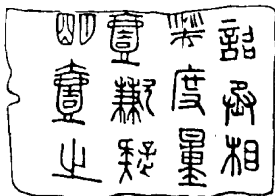 詔丞相
度量
壹歉疑
明壹之